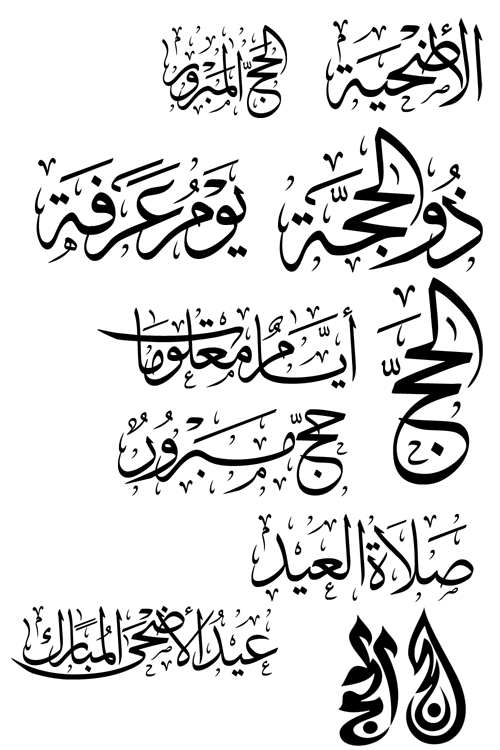 الأضحية
الحج المبرور
ذُو الحجَّة
يَوْمُ عَرَفَة
الحَجّ
أيَّامٌ معْلومَات
حجّ مَبرُورٌ
صَلَاة العيد
عيدُ الأضْحَى المُبَارَك
الحج